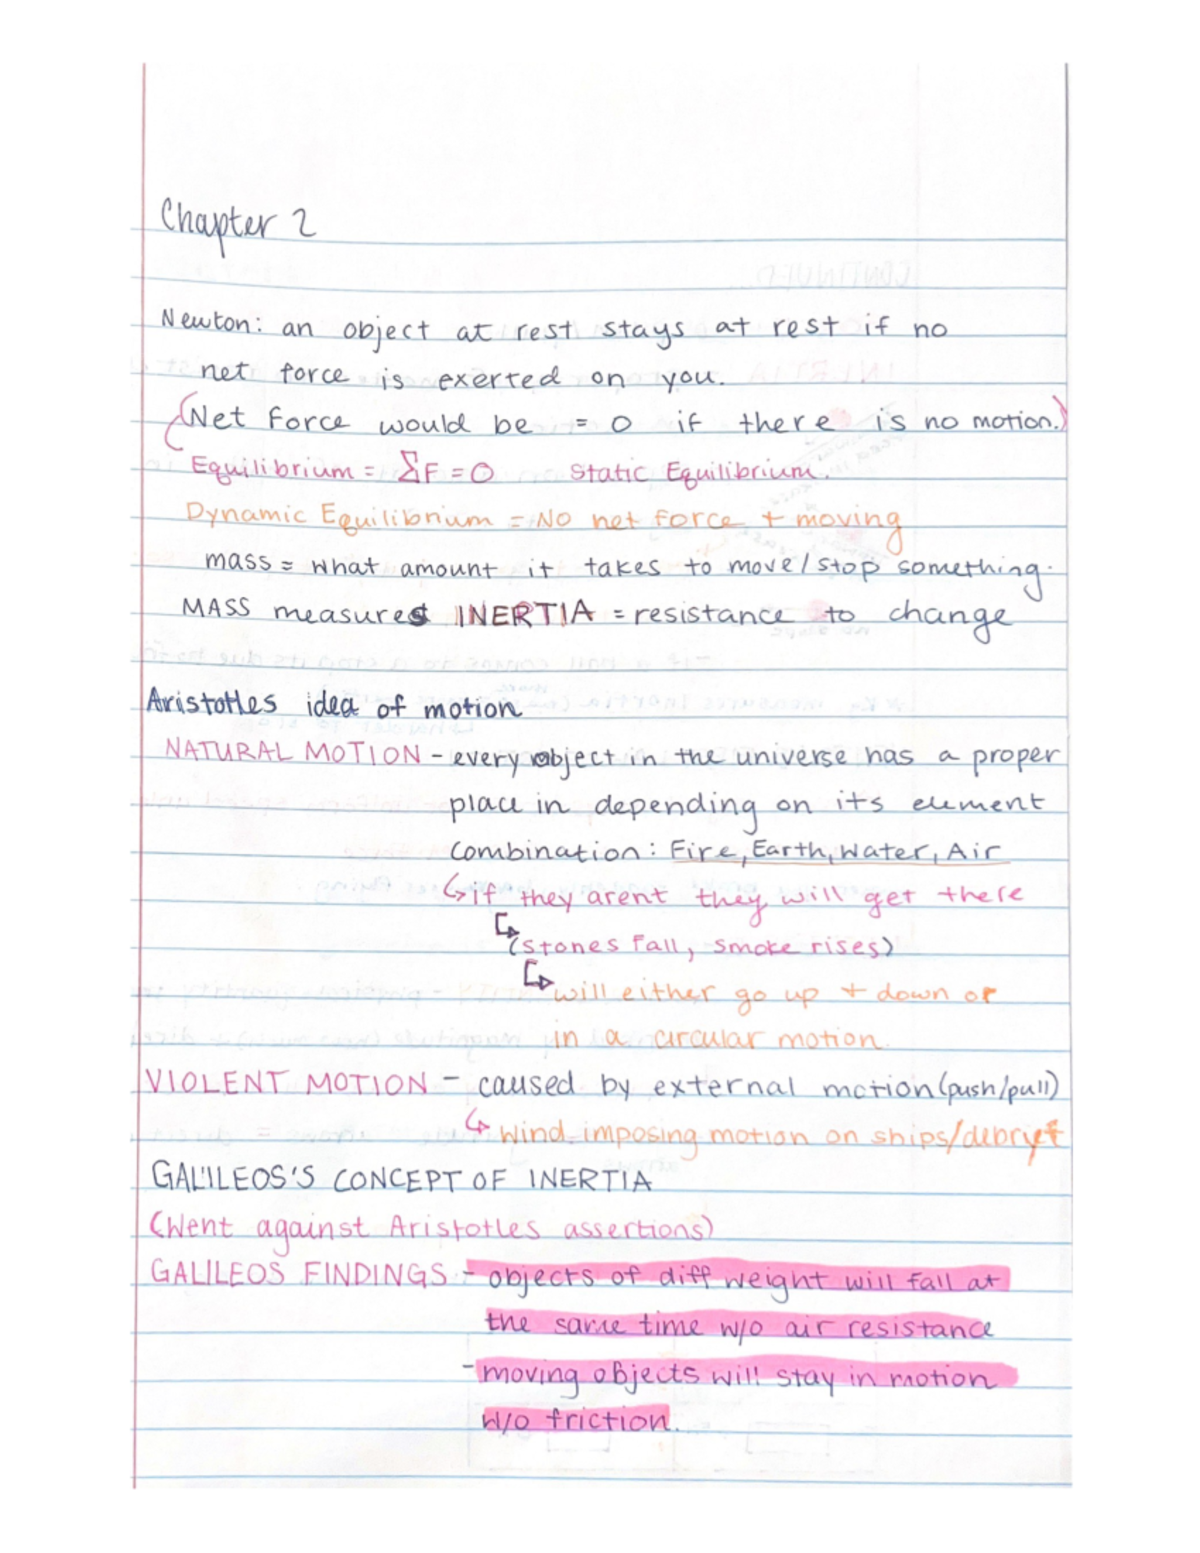 Chapter 2
Newton: an object at rest stays at rest if no
net force is exerted on you.
(Net Force would be = 0 if there is no motion.)
Equilibrium = ΣF = 0 Static Equilibrium.
Dynamic Equilibrium = No net force + moving
mass = what amount it takes to move/stop something.
MASS measures INERTIA = resistance to change
Aristotles idea of motion
NATURAL MOTION - every object in the universe has a proper
place in depending on its element
combination: Fire, Earth, Water, Air
↳ if they arent they will get there
↳ (stones fall, smoke rises)
↳ will either go up + down or
in a circular motion.
VIOLENT MOTION - caused by external motion (push/pull)
↳ Wind imposing motion on ships/debry
GALILEOS'S CONCEPT OF INERTIA
(Went against Aristotles assertions)
GALILEOS FINDINGS - objects of diff weight will fall at
the same time w/o air resistance
- moving objects will stay in motion
w/o friction.